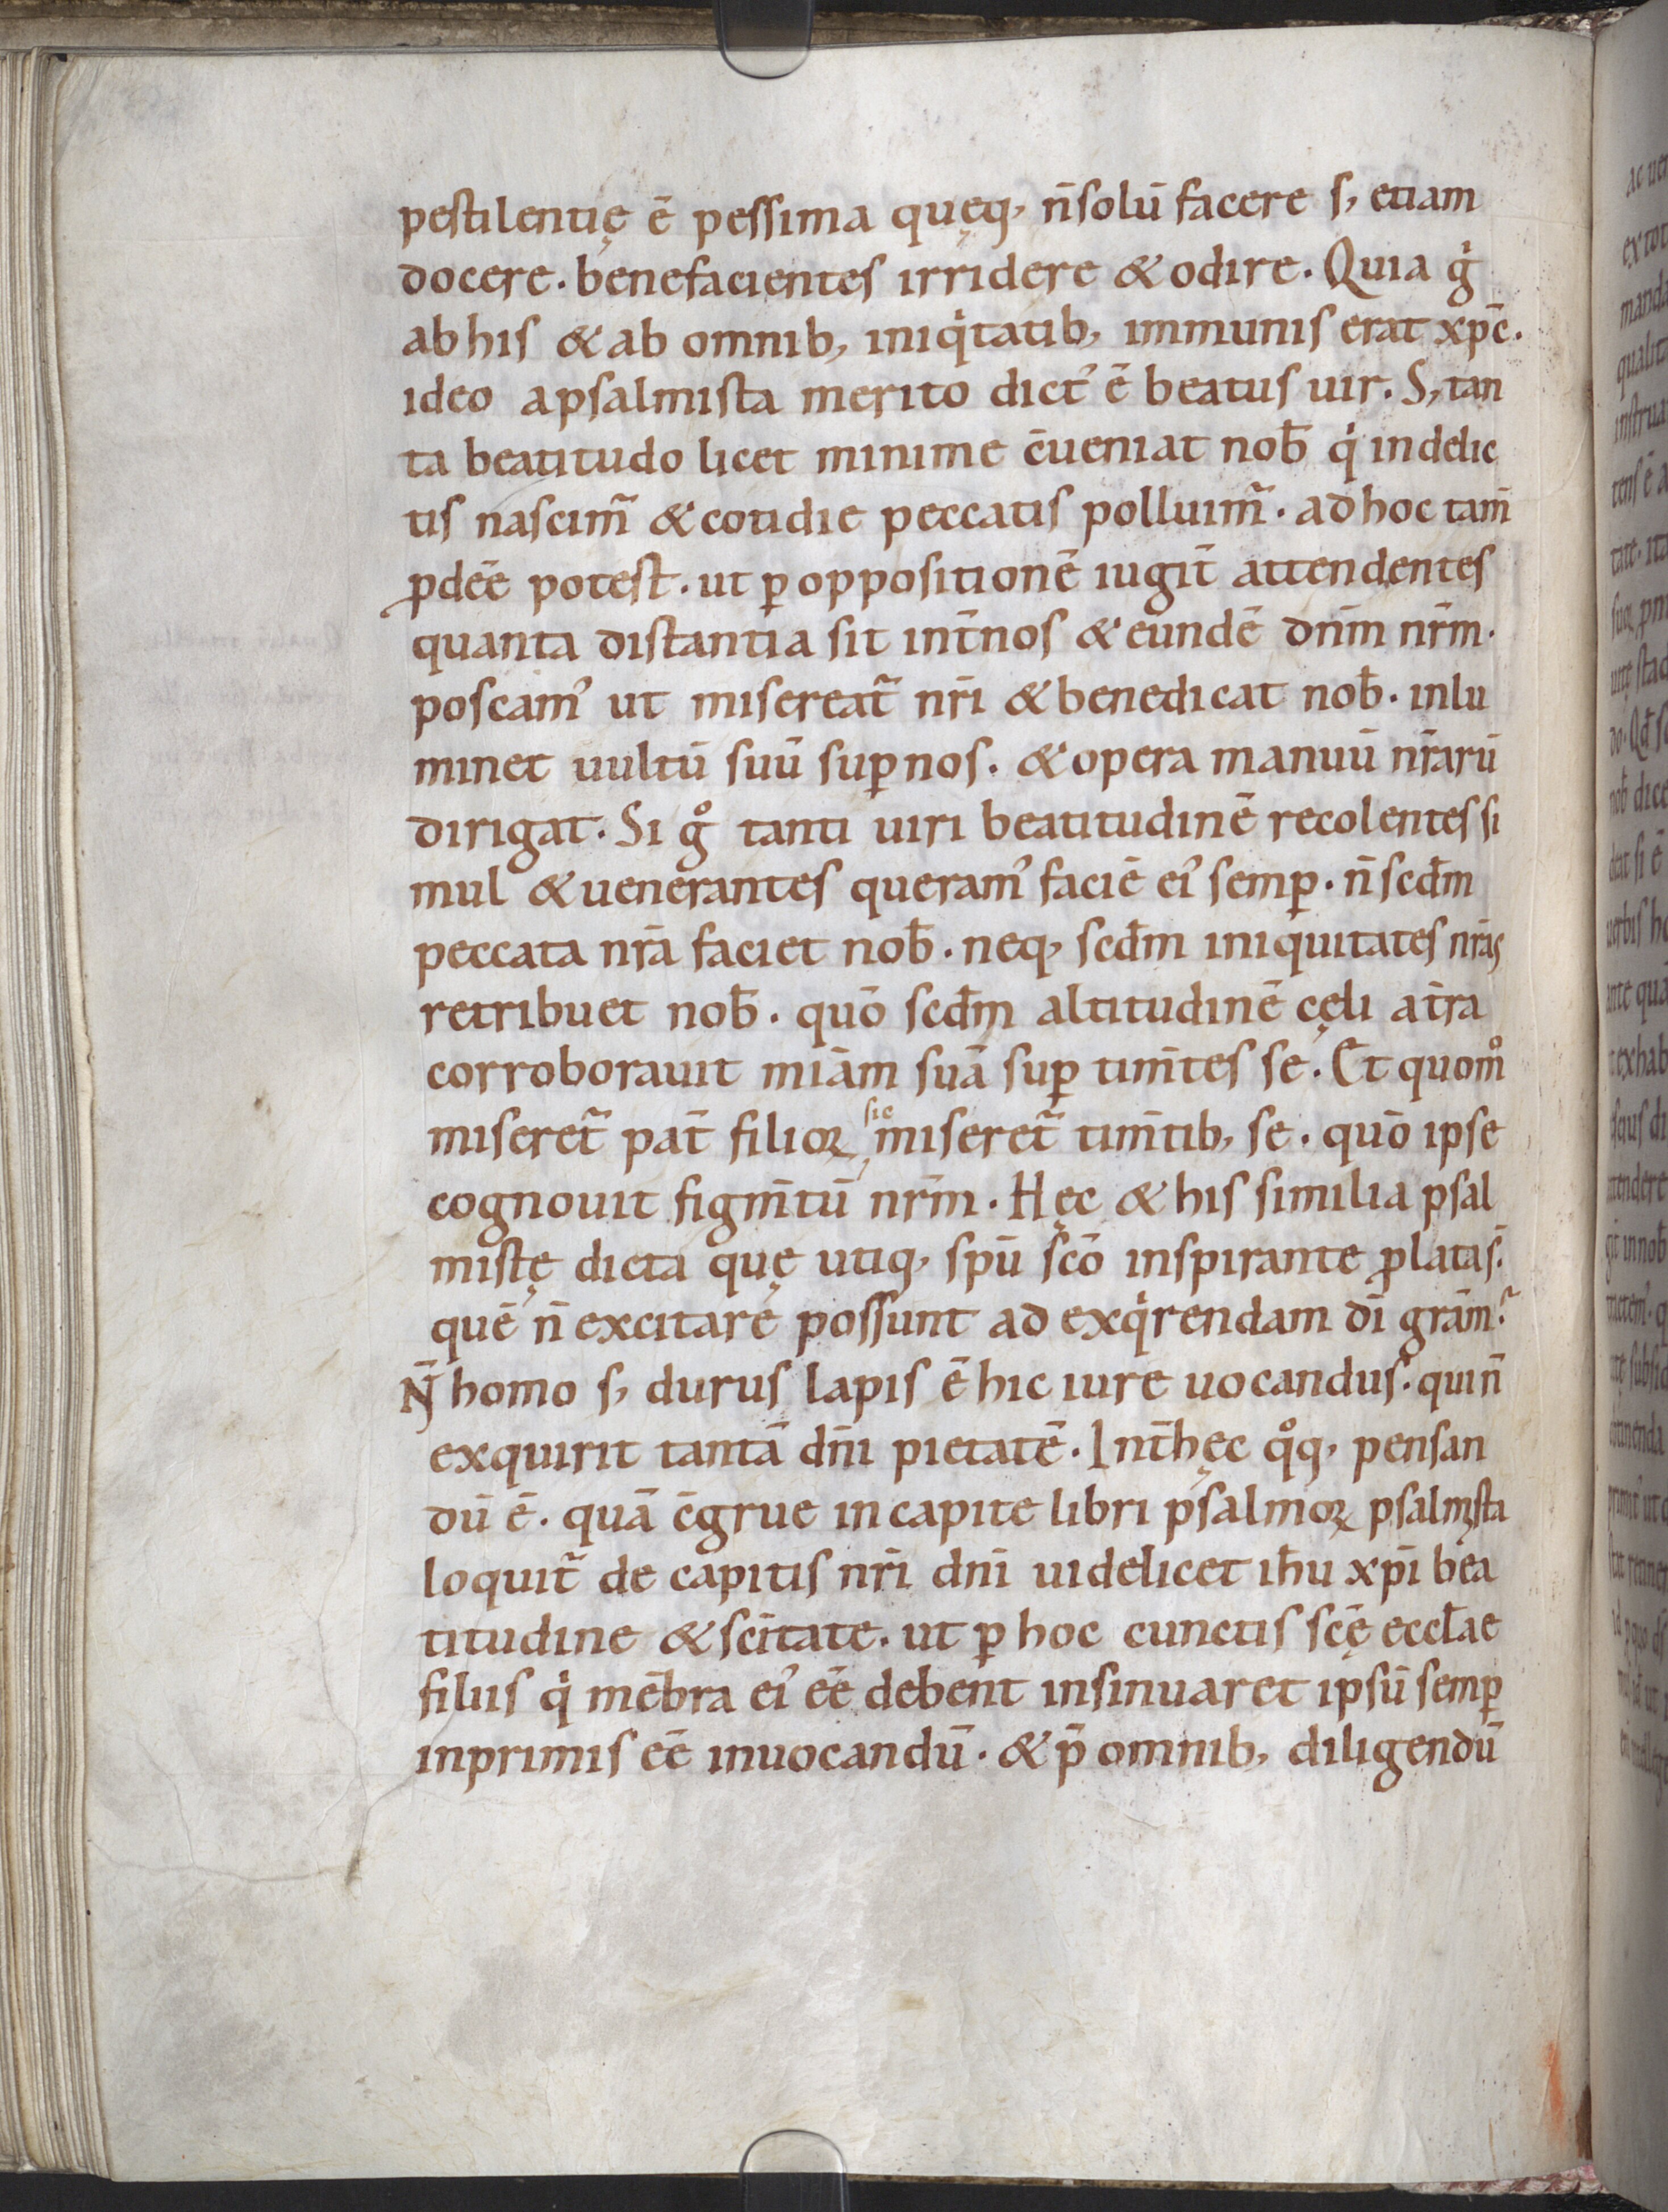 pestilentię ē pessima quęq; n̄ solū facere s; etiam
docere. benefacientes irridere & odire. Quia gͥ
ab his & ab omnib; iniqͥtatib; immunis erat xp̄c.
ideo a psalmista merito dict᾿ ē beatus uir. S; tan
ta beatitudo licet minime c̄ueniat nob̄ qͥ in delic
tis nascim̃ & cotidie peccatis polluim̃. ad hoc tam̄
ꝓdeē potest. ut ꝑ oppositionē iugit̄ attendentes
quanta distantia sit int̄ nos & eundē dn̄m nr̄m.
poscam᾿ ut misereat̃ nr̄i & benedicat nob̄. inlu
minet uultū suū suꝑ nos. & opera manuū nr̄arū
dirigat. Si gͦ tanti uiri beatitudinē recolentes si
mul & uenerantes queram᾿ faciē ei᾿ semꝑ. n̄ scd̄m
peccata nr̄a faciet nob̄. neq; scd̄m iniquitates nr̄as
retribuet nob̄. quō scd̄m altitudinē cęli a t̄ra
corroborauit miām suā suꝑ tim̄tes se. Et quomͦ
miseret̃ pat̄ filioꝝ sic miseret̃ tim̄tib; se. quō ipse
cognouit figm̄tū nr̄m. Hęc & his similia psal
mistę dicta quę utiq; sp̄u sc̄o inspirante ꝓlata s̄.
quē n̄ excitare possunt ad exqͥrendam dī grām?
N̄ homo s; durus lapis ē hic iure uocandus. qui n̄
exquirit tantā dn̄i pietatē. Int̄ hęc qͦq; pensan
dū ē. quā c̄grue in capite libri psalmoꝝ psalmista
loquit̃ de capitis nr̄i dn̄i uidelicet ih̄u xp̄i bea
titudine & sc̄itate. ut ꝑ hoc cunctis sc̄ę eccl̄ae
filiis qͥ mēbra ei᾿ eē debent insinuaret ipsū semꝑ
inprimis eē inuocandū. & p̄ omnib; diligendū